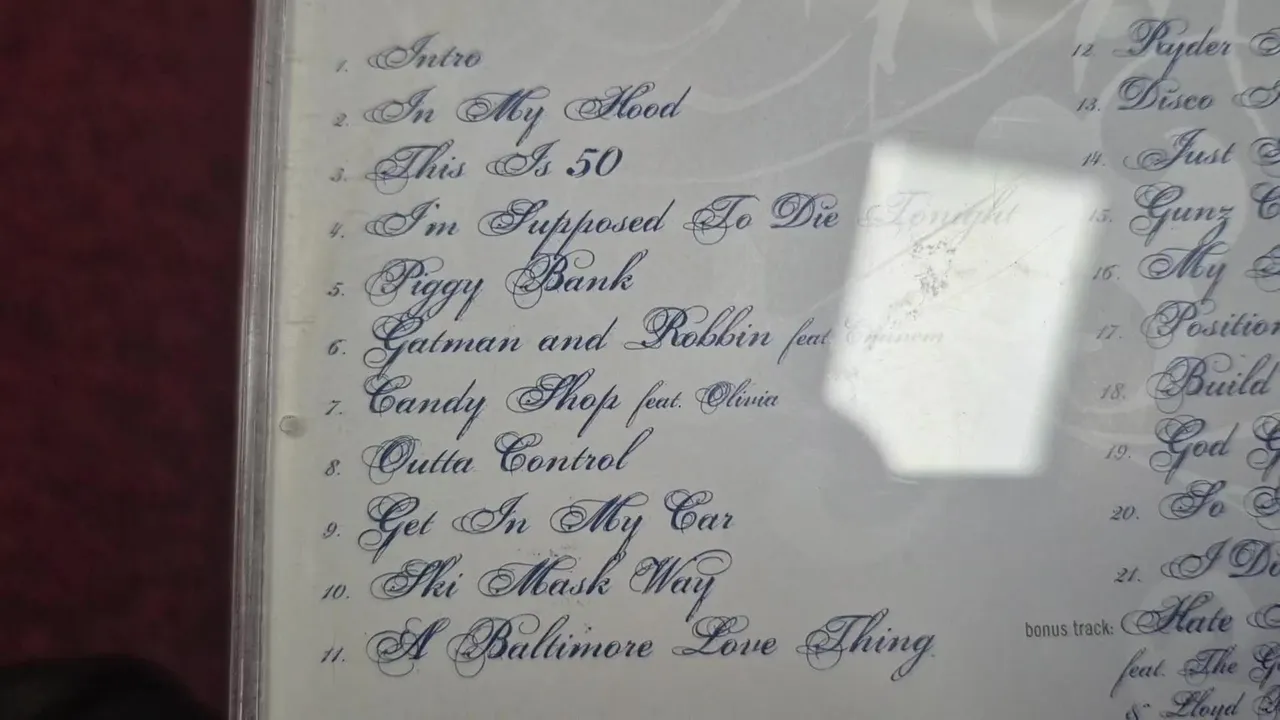 1. Intro
2. In My Hood
3. This Is 50
4. I'm Supposed To Die Tonight
5. Piggy Bank
6. Gatman and Robbin feat. Eminem
7. Candy Shop feat. Olivia
8. Outta Control
9. Get In My Car
10. Ski Mask Way
11. A Baltimore Love Thing
12. Ryder
13. Disco
14. Just
15. Gunz
16. My
17. Position
18. Build
19. God
20. So
21. I
bonus track: Hate
feat. The
& Lloyd